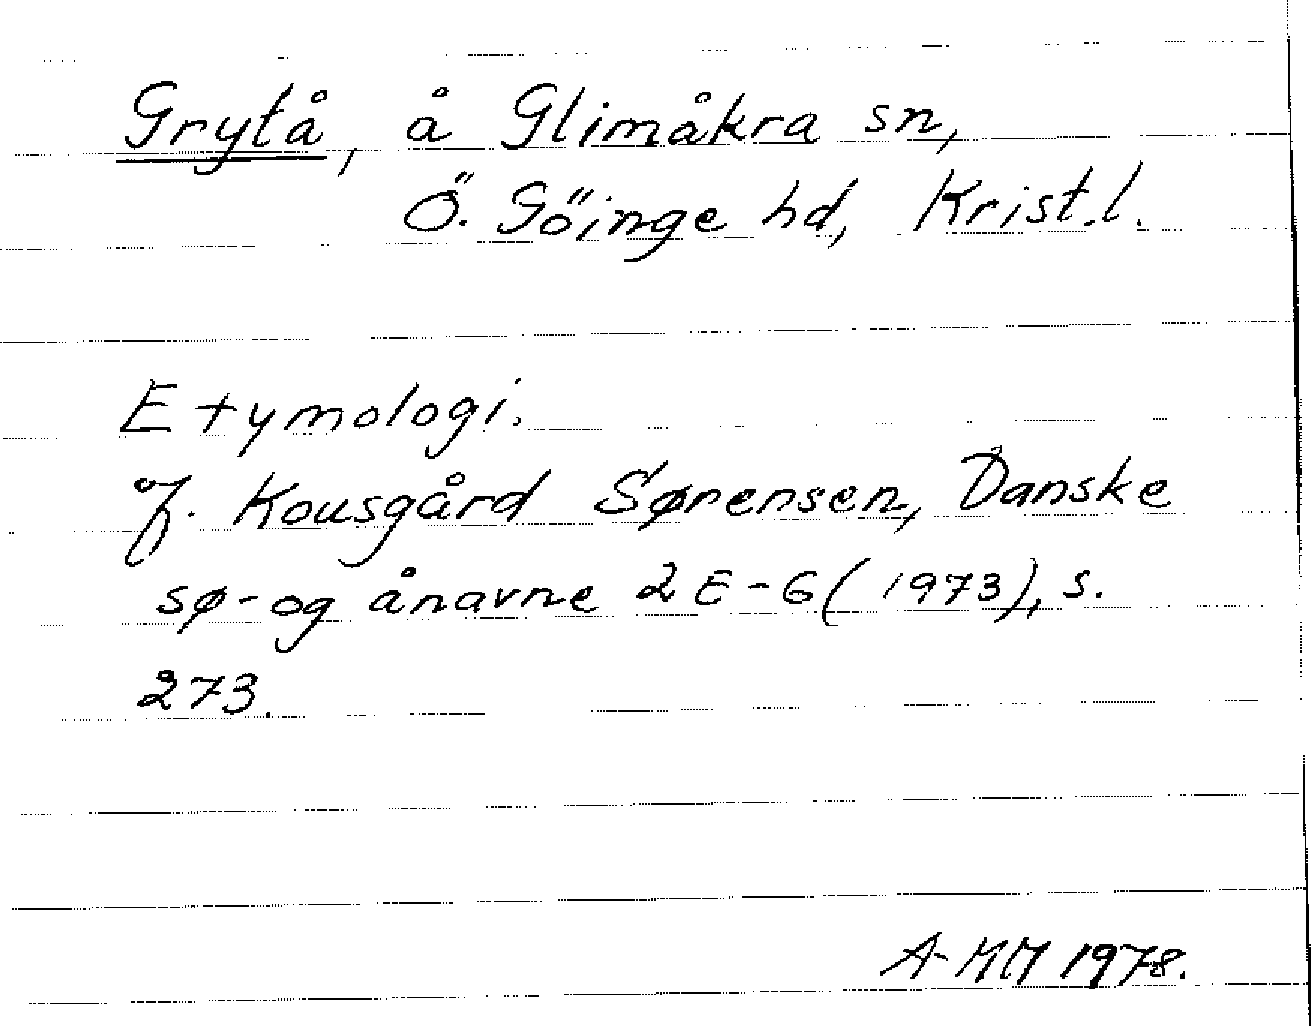 Grytå, å Glimåkra sn,
Ö. Göinge hd, Krist.l.
Etymologi.
Jf. Kousgård Sørensen, Danske
sø- og ånavne 2 E-G (1973), s.
273.
A-MM 1978.